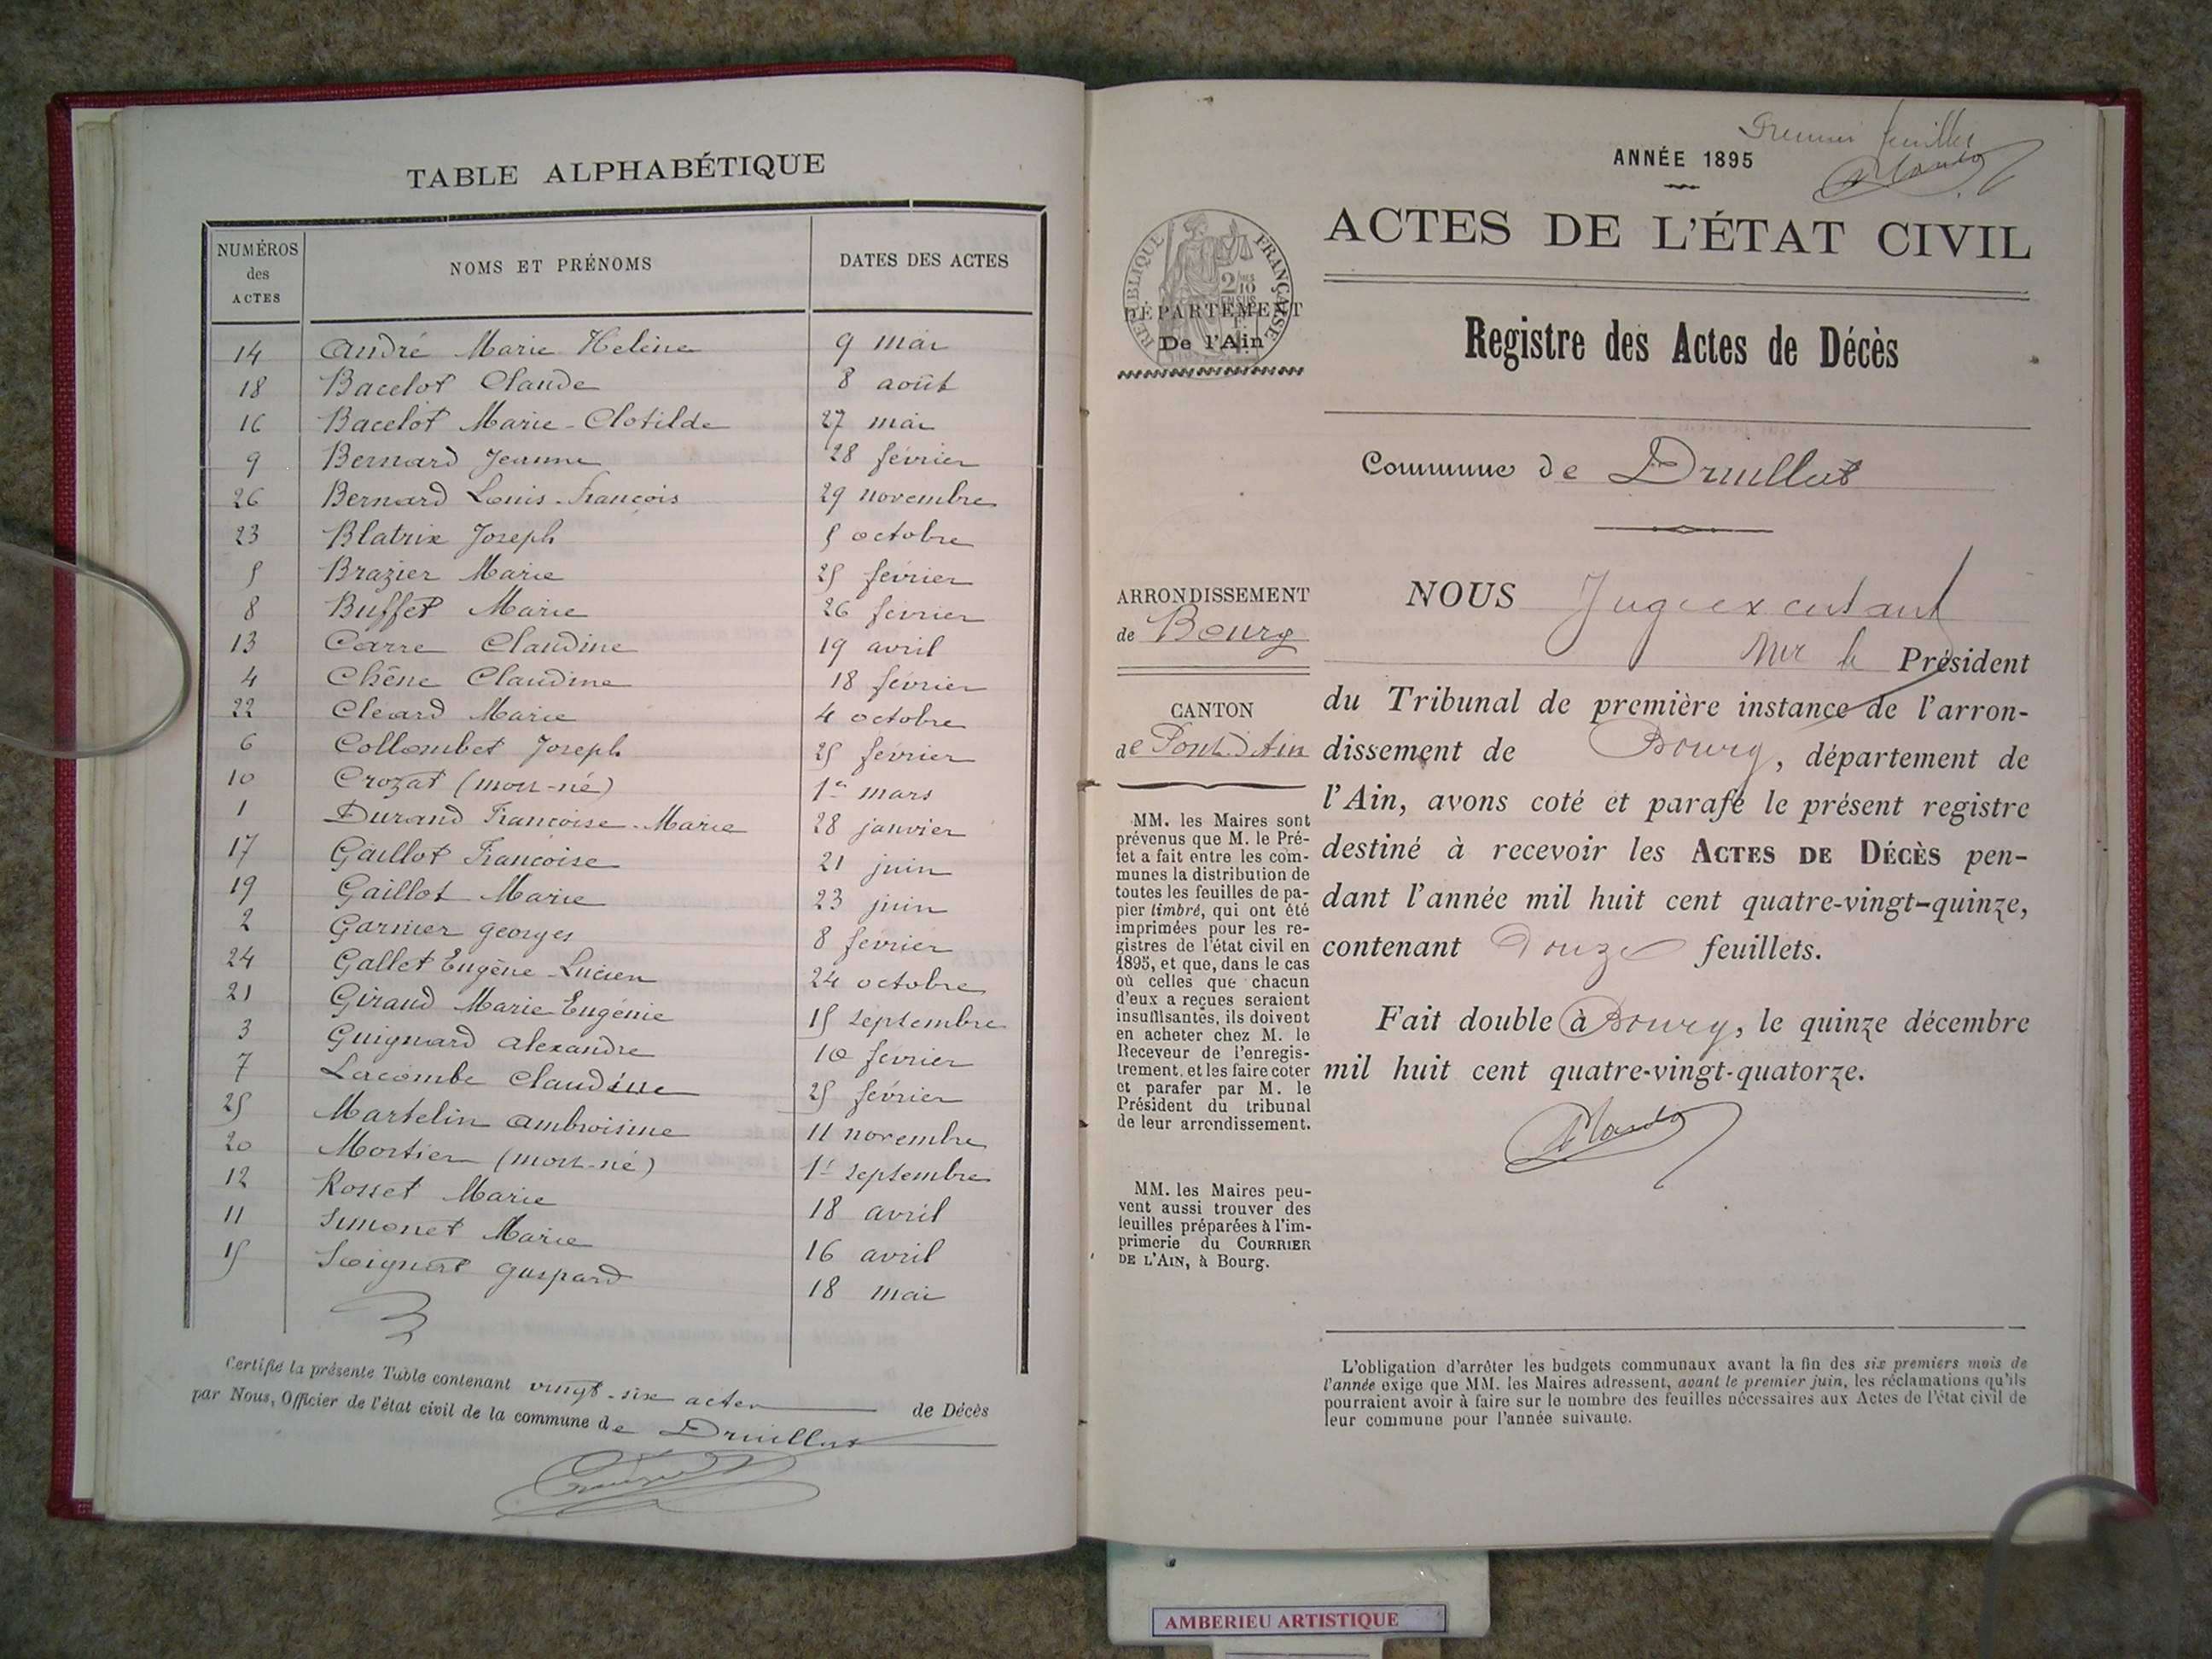 TABLE ALPHABÉTIQUE
NUMÉROS des ACTES NOMS ET PRÉNOMS DATES DES ACTES
14 André Marie Helène 9 mai
18 Bacelot Claude 8 août
16 Bacelot Marie-Clotilde 27 mai
9 Bernard Jeanne 28 février
26 Bernard Louis-François 29 novembre
23 Blatrix Joseph 5 octobre
5 Brazier Marie 25 février
8 Buffet Marie 26 février
13 Carre Claudine 19 avril
4 Chêne Claudine 18 février
22 Cleard Marie 4 octobre
6 Collombet Joseph 25 février
10 Crozat (mort-né) 1er mars
1 Durand Francoise-Marie 28 janvier
17 Gaillot Francoise 21 juin
19 Gaillot Marie 23 juin
2 Garnier Georges 8 février
24 Gallet Eugène-Lucien 24 octobre
21 Giraud Marie Eugénie 15 septembre
3 Guignard Alexandre 10 février
7 Lacombe Claudine 25 février
25 Martelin Ambroisine 11 novembre
20 Mortier (mort-né) 1r septembre
12 Rosset Marie 18 avril
11 Simonet Marie 16 avril
15 Gaspard 18 mai
Certifié la présente Table contenant vingt-six actes de Décès
par Nous, Officier de l'état civil de la commune de Druillat
Premier feuillet
ANNÉE 1895
ACTES DE L'ÉTAT CIVIL
RÉPUBLIQUE FRANÇAISE
DÉPARTEMENT
De l'Ain
Registre des Actes de Décès
Commune de Druillat
ARRONDISSEMENT
de Bourg
CANTON
de Pont d'Ain
MM. les Maires sont
prévenus que M. le Pré-
fet a fait entre les com-
munes la distribution de
toutes les feuilles de pa-
pier timbré, qui ont été
imprimées pour les re-
gistres de l'état civil en
1895, et que, dans le cas
où celles que chacun
d'eux a reçues seraient
insuffisantes, ils doivent
en acheter chez M. le
Receveur de l'enregis-
trement, et les faire coter
et parafer par M. le
Président du tribunal
de leur arrondissement.
MM. les Maires peu-
vent aussi trouver des
feuilles préparées à l'im-
primerie du COURRIER
DE L'AIN, à Bourg.
NOUS Juge
Mr le Président
du Tribunal de première instance de l'arron-
dissement de Bourg, département de
l'Ain, avons coté et parafé le présent registre
destiné à recevoir les ACTES DE DÉCÈS pen-
dant l'année mil huit cent quatre-vingt-quinze,
contenant Douze feuillets.
Fait double à Bourg, le quinze décembre
mil huit cent quatre-vingt-quatorze.
L'obligation d'arrêter les budgets communaux avant la fin des six premiers mois de
l'année exige que MM. les Maires adressent, avant le premier juin, les réclamations qu'ils
pourraient avoir à faire sur le nombre des feuilles nécessaires aux Actes de l'état civil de
leur commune pour l'année suivante.
AMBERIEU ARTISTIQUE